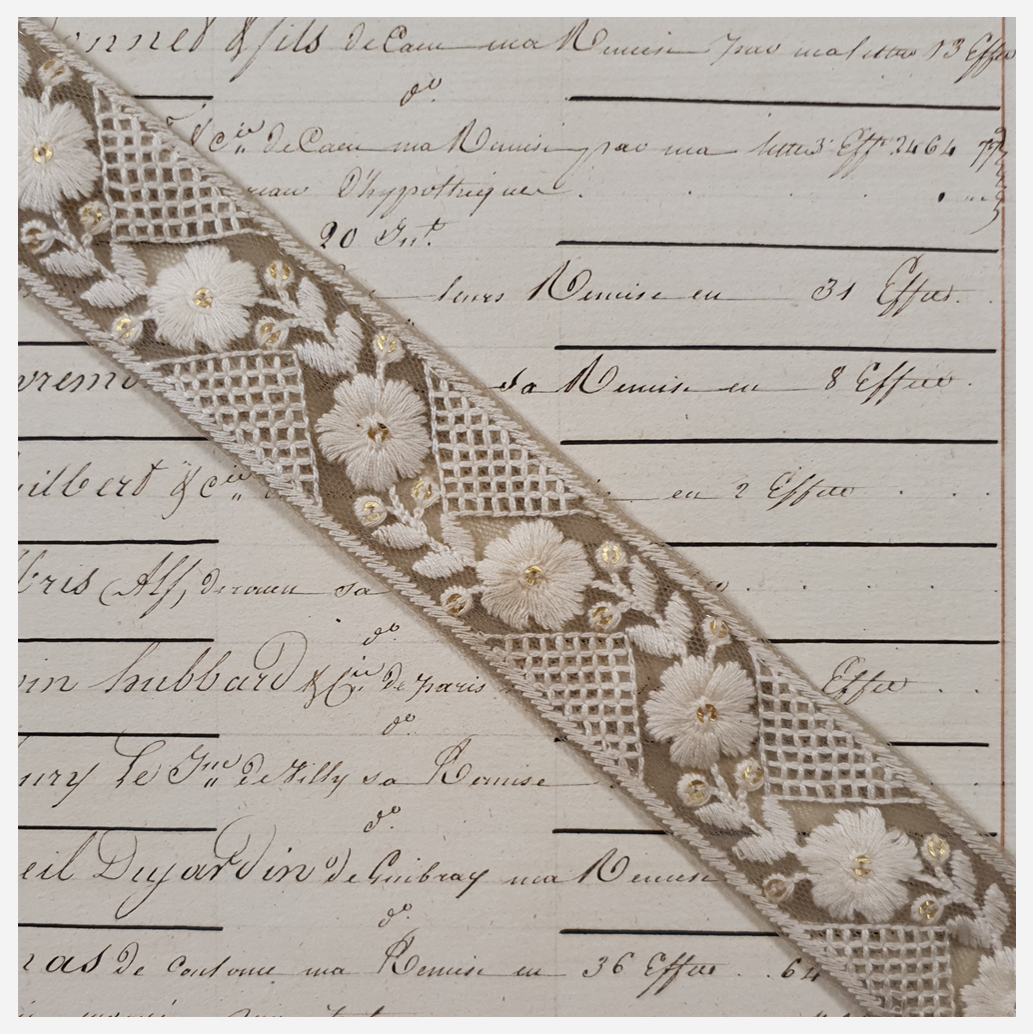 onnet & fils de Caen ma Remise par ma lettre 13 Effe
d°
& Cie de Caen ma Remise par ma lettre 3 Effts 2464
reau D'hypothèques
20 Jnt.
leurs Remise en 31 Effets.
vremo sa Remise en 8 Effets.
uilbert & Cie en 2 Effets
bris Alf, de rouen sa
d°
in hubbard & Cie De paris Effet
d°
ury Le Jne de Tilly sa Remise
d°
eil Dujardin de Guibray ma Remise
d°
ras De ma Remise en 36 Effets 64